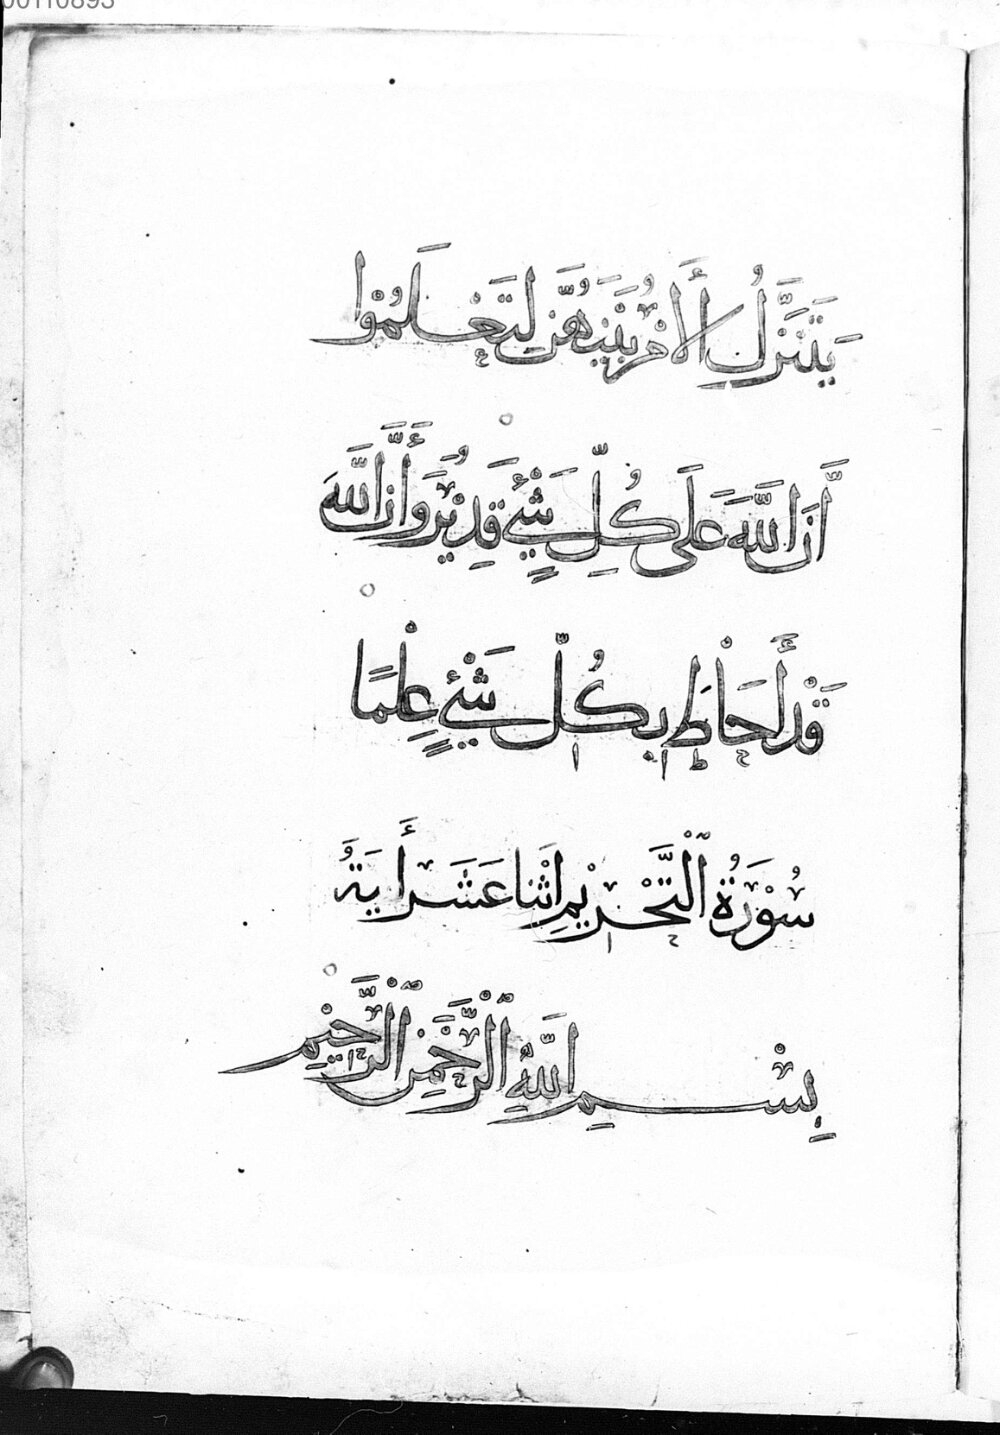 00110893
يَتَنَزَّلُ الأَمْرُ بَيْنَهُنَّ لِتَعْلَمُوْا
اَنَّ اللّٰهَ عَلَى كُلِّ شَيْءٍ قَدِيْرٌ وَأَنَّ اللّٰهَ
قَدْ أَحَاطَ بِكُلِّ شَيْءٍ عِلْمًا
سُوْرَةُ التَّحْرِيْمِ اثْنَا عَشَرَ أَيَةً
بِسْمِ اللّٰهِ الرَّحْمٰنِ الرَّحِيْمِ